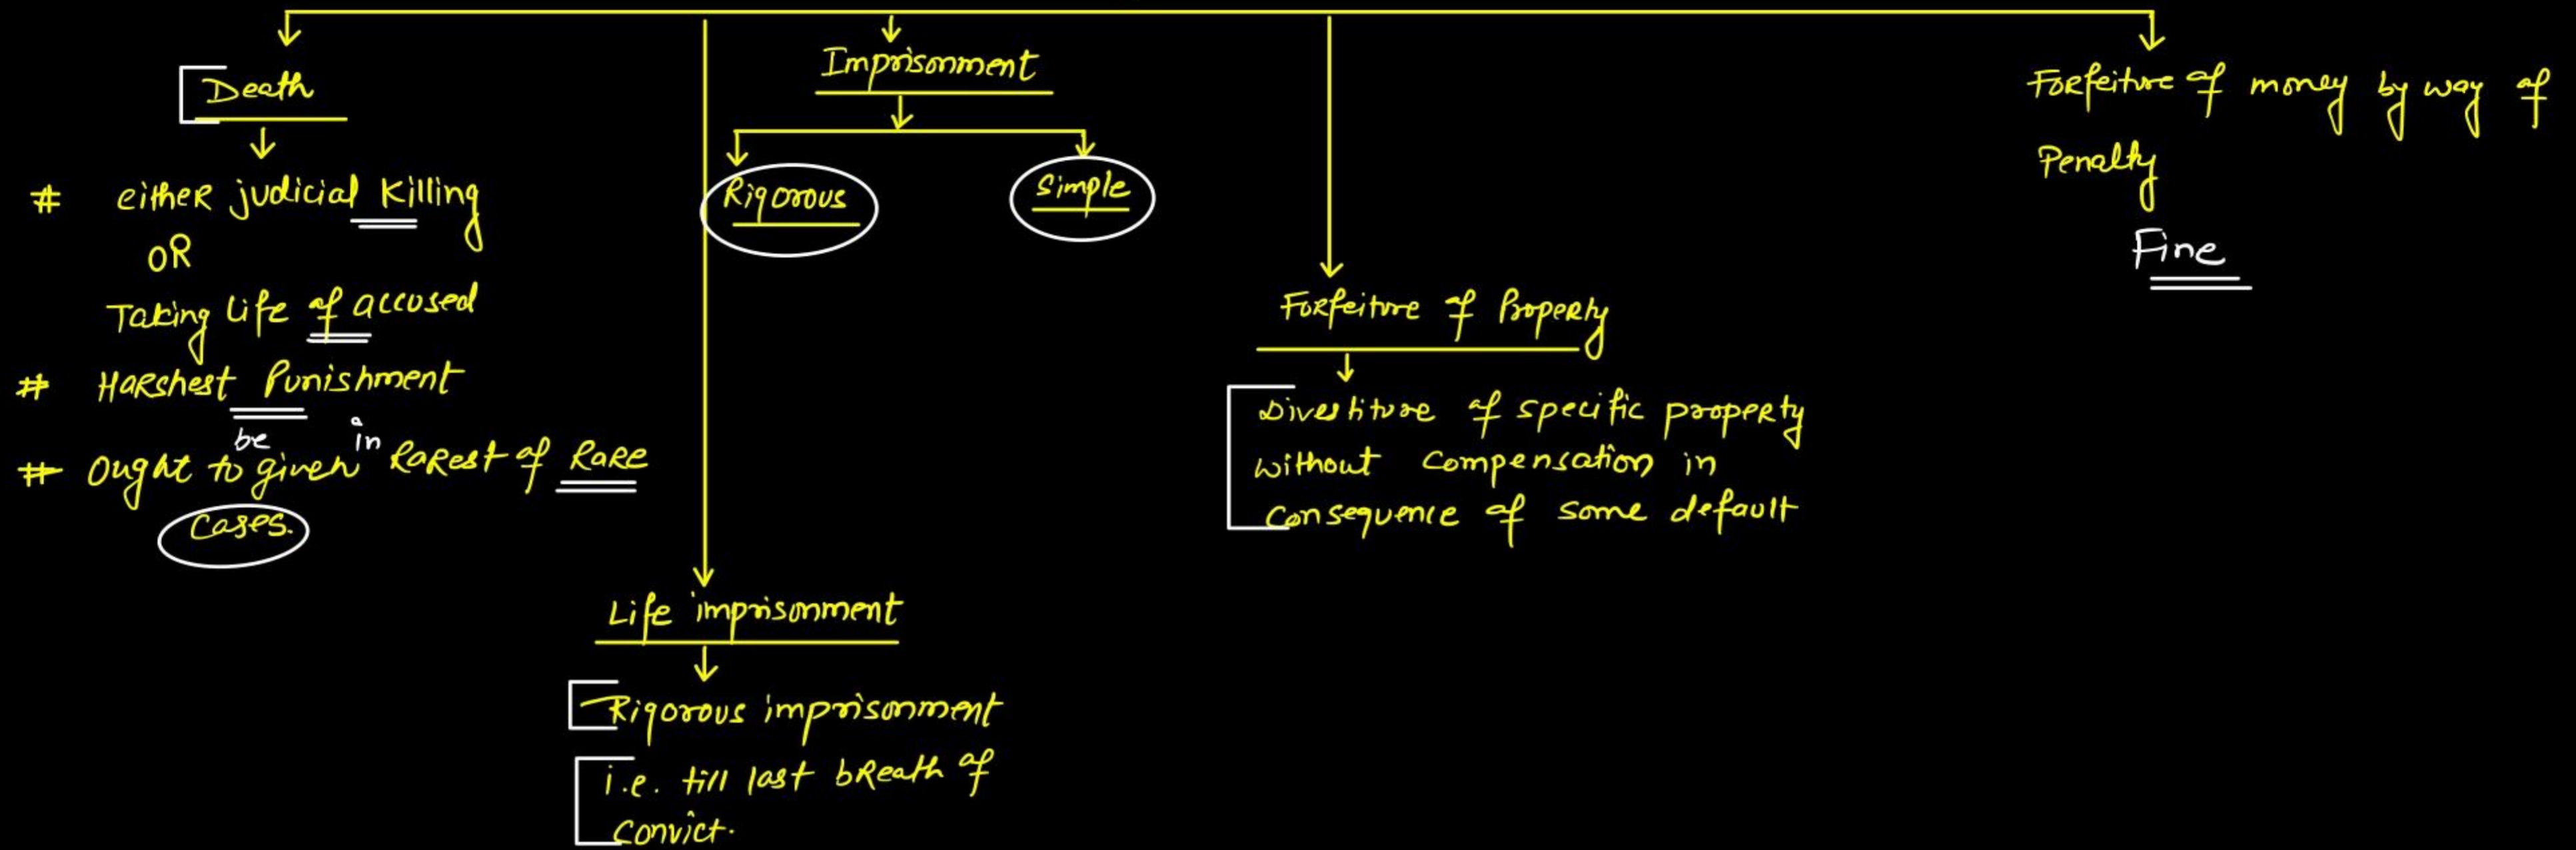 Death
# either judicial Killing
OR
Taking life of accused
# Harshest Punishment
be in
# Ought to given Rarest of Rare
Cases.
Life imprisonment
Rigorous imprisonment
i.e. till last breath of
Convict.
Imprisonment
Rigorous
Simple
Forfeiture of Property
Divestiture of specific property
without compensation in
consequence of some default
Forfeiture of money by way of
Penalty
Fine